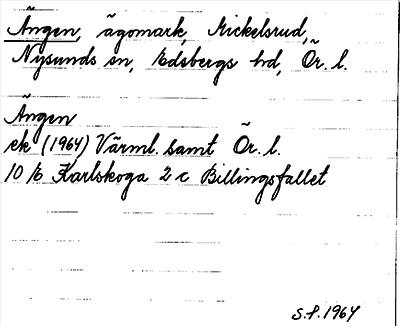 Ängen, ägomark, Mickelsrud,
Nysunds sn, Edsbergs hd, Ör. l.
Ängen
ek (1964) Värml. samt Ör. l.
10 E Karlskoga 2 c Billingsfallet
S.P. 1964